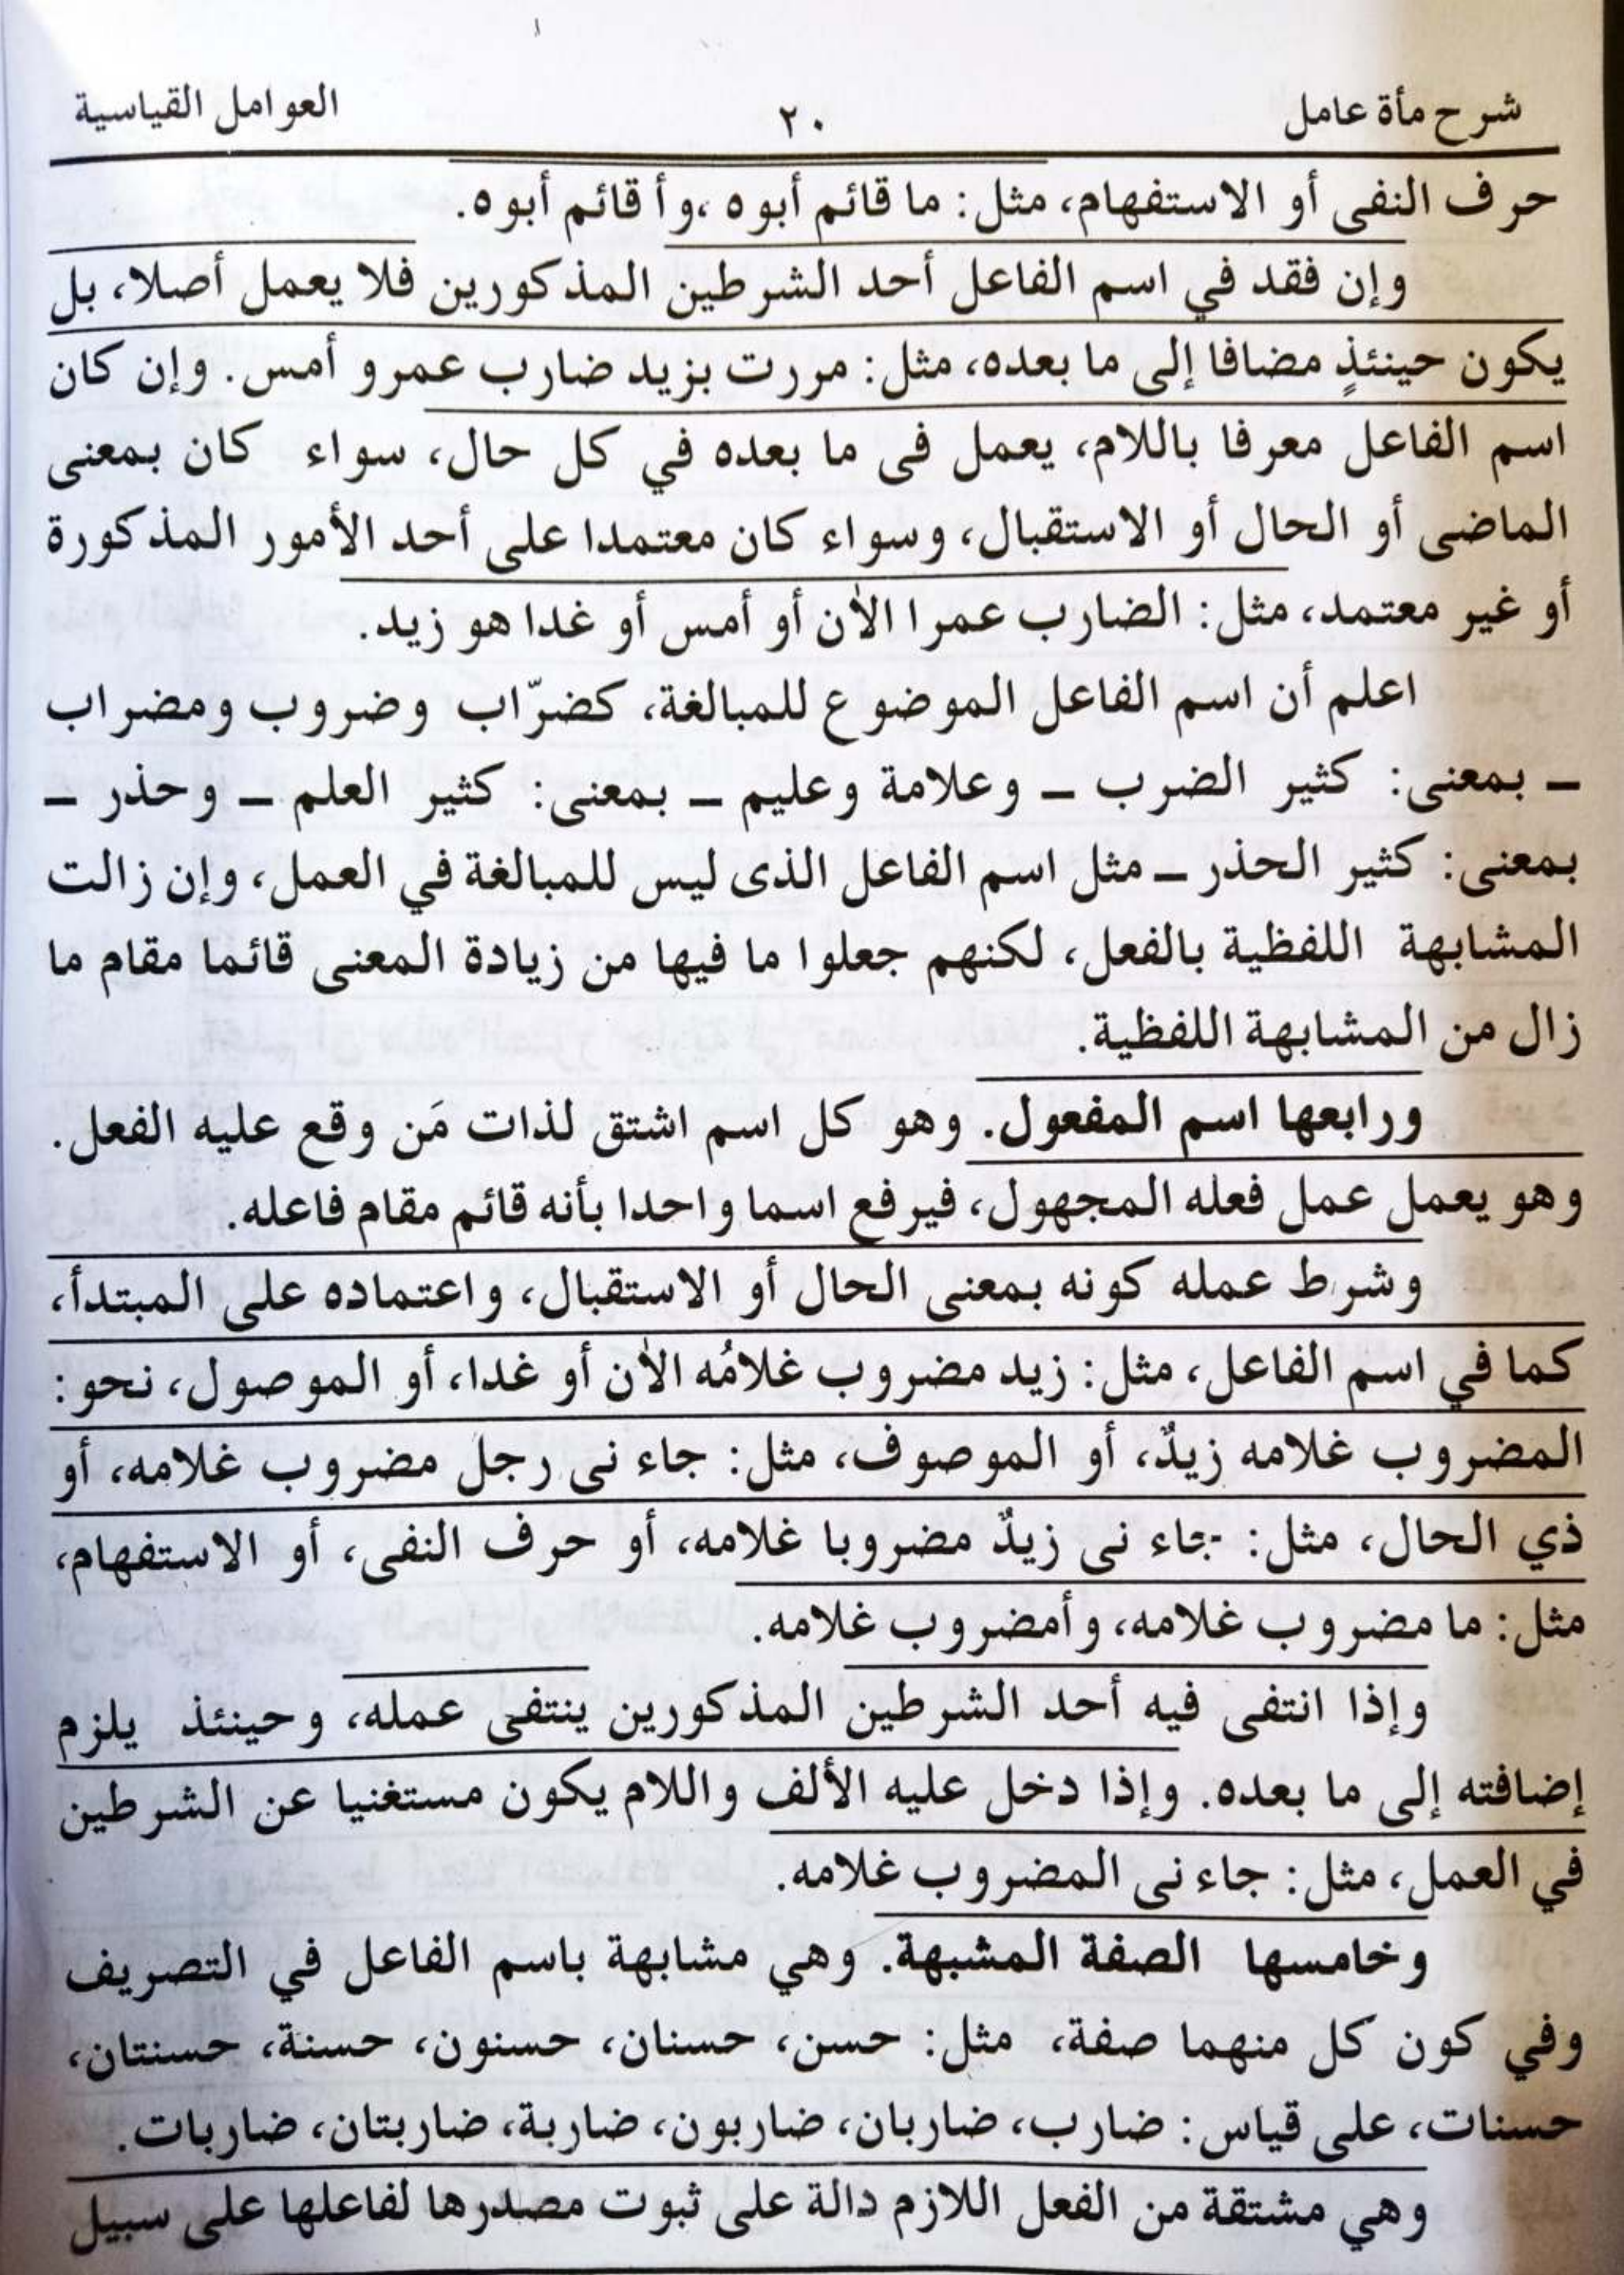 شرح مأة عامل ٢٠ العوامل القياسية
حرف النفى أو الاستفهام، مثل: ما قائم أبوه ،وأ قائم أبوه.
وإن فقد في اسم الفاعل أحد الشرطين المذكورين فلا يعمل أصلا، بل
يكون حينئذٍ مضافا إلى ما بعده، مثل: مررت بزيد ضارب عمرو أمس. وإن كان
اسم الفاعل معرفا باللام، يعمل فى ما بعده في كل حال، سواء كان بمعنى
الماضى أو الحال أو الاستقبال، وسواء كان معتمدا على أحد الأمور المذكورة
أو غير معتمد، مثل: الضارب عمرا الاٰن أو أمس أو غدا هو زيد.
اعلم أن اسم الفاعل الموضوع للمبالغة، كضرّاب وضروب ومضراب
ــ بمعنى: كثير الضرب ــ وعلامة وعليم ــ بمعنى: كثير العلم ــ وحذر ــ
بمعنى: كثير الحذر ــ مثل اسم الفاعل الذى ليس للمبالغة في العمل، وإن زالت
المشابهة اللفظية بالفعل، لكنهم جعلوا ما فيها من زيادة المعنى قائما مقام ما
زال من المشابهة اللفظية.
ورابعها اسم المفعول. وهو كل اسم اشتق لذات مَن وقع عليه الفعل.
وهو يعمل عمل فعله المجهول، فيرفع اسما واحدا بأنه قائم مقام فاعله.
وشرط عمله كونه بمعنى الحال أو الاستقبال، واعتماده على المبتدأ،
كما في اسم الفاعل، مثل: زيد مضروب غلامُه الاٰن أو غدا، أو الموصول، نحو:
المضروب غلامه زيدٌ، أو الموصوف، مثل: جاء نى رجل مضروب غلامه، أو
ذي الحال، مثل: جاء نى زيدٌ مضروبا غلامه، أو حرف النفى، أو الاستفهام،
مثل: ما مضروب غلامه، وأمضروب غلامه.
وإذا انتفى فيه أحد الشرطين المذكورين ينتفى عمله، وحينئذ يلزم
إضافته إلى ما بعده. وإذا دخل عليه الألف واللام يكون مستغنيا عن الشرطين
في العمل، مثل: جاء نى المضروب غلامه.
وخامسها الصفة المشبهة. وهي مشابهة باسم الفاعل في التصريف
وفي كون كل منهما صفة، مثل: حسن، حسنان، حسنون، حسنة، حسنتان،
حسنات، على قياس: ضارب، ضاربان، ضاربون، ضاربة، ضاربتان، ضاربات.
وهي مشتقة من الفعل اللازم دالة على ثبوت مصدرها لفاعلها على سبيل